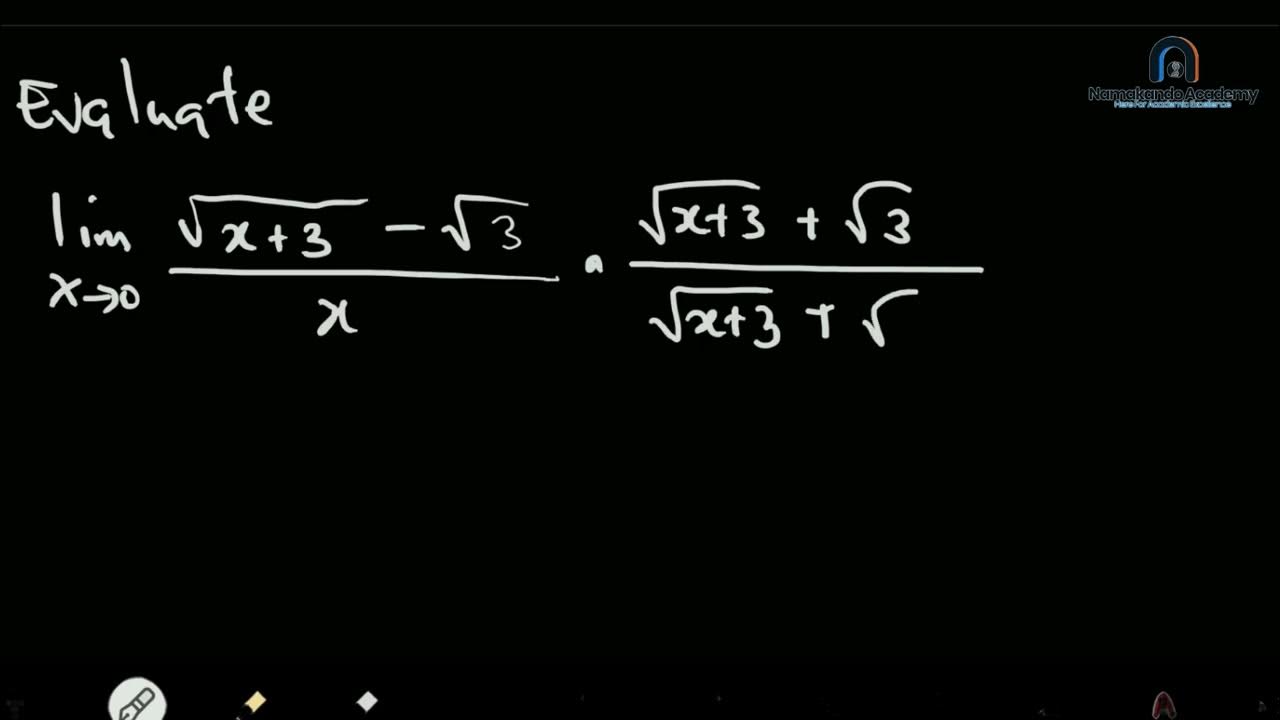 Namakando Academy
Here For Academic Excellence
Evaluate
lim x→0 (√(x+3) − √3)/x · (√(x+3) + √3)/(√(x+3) + √